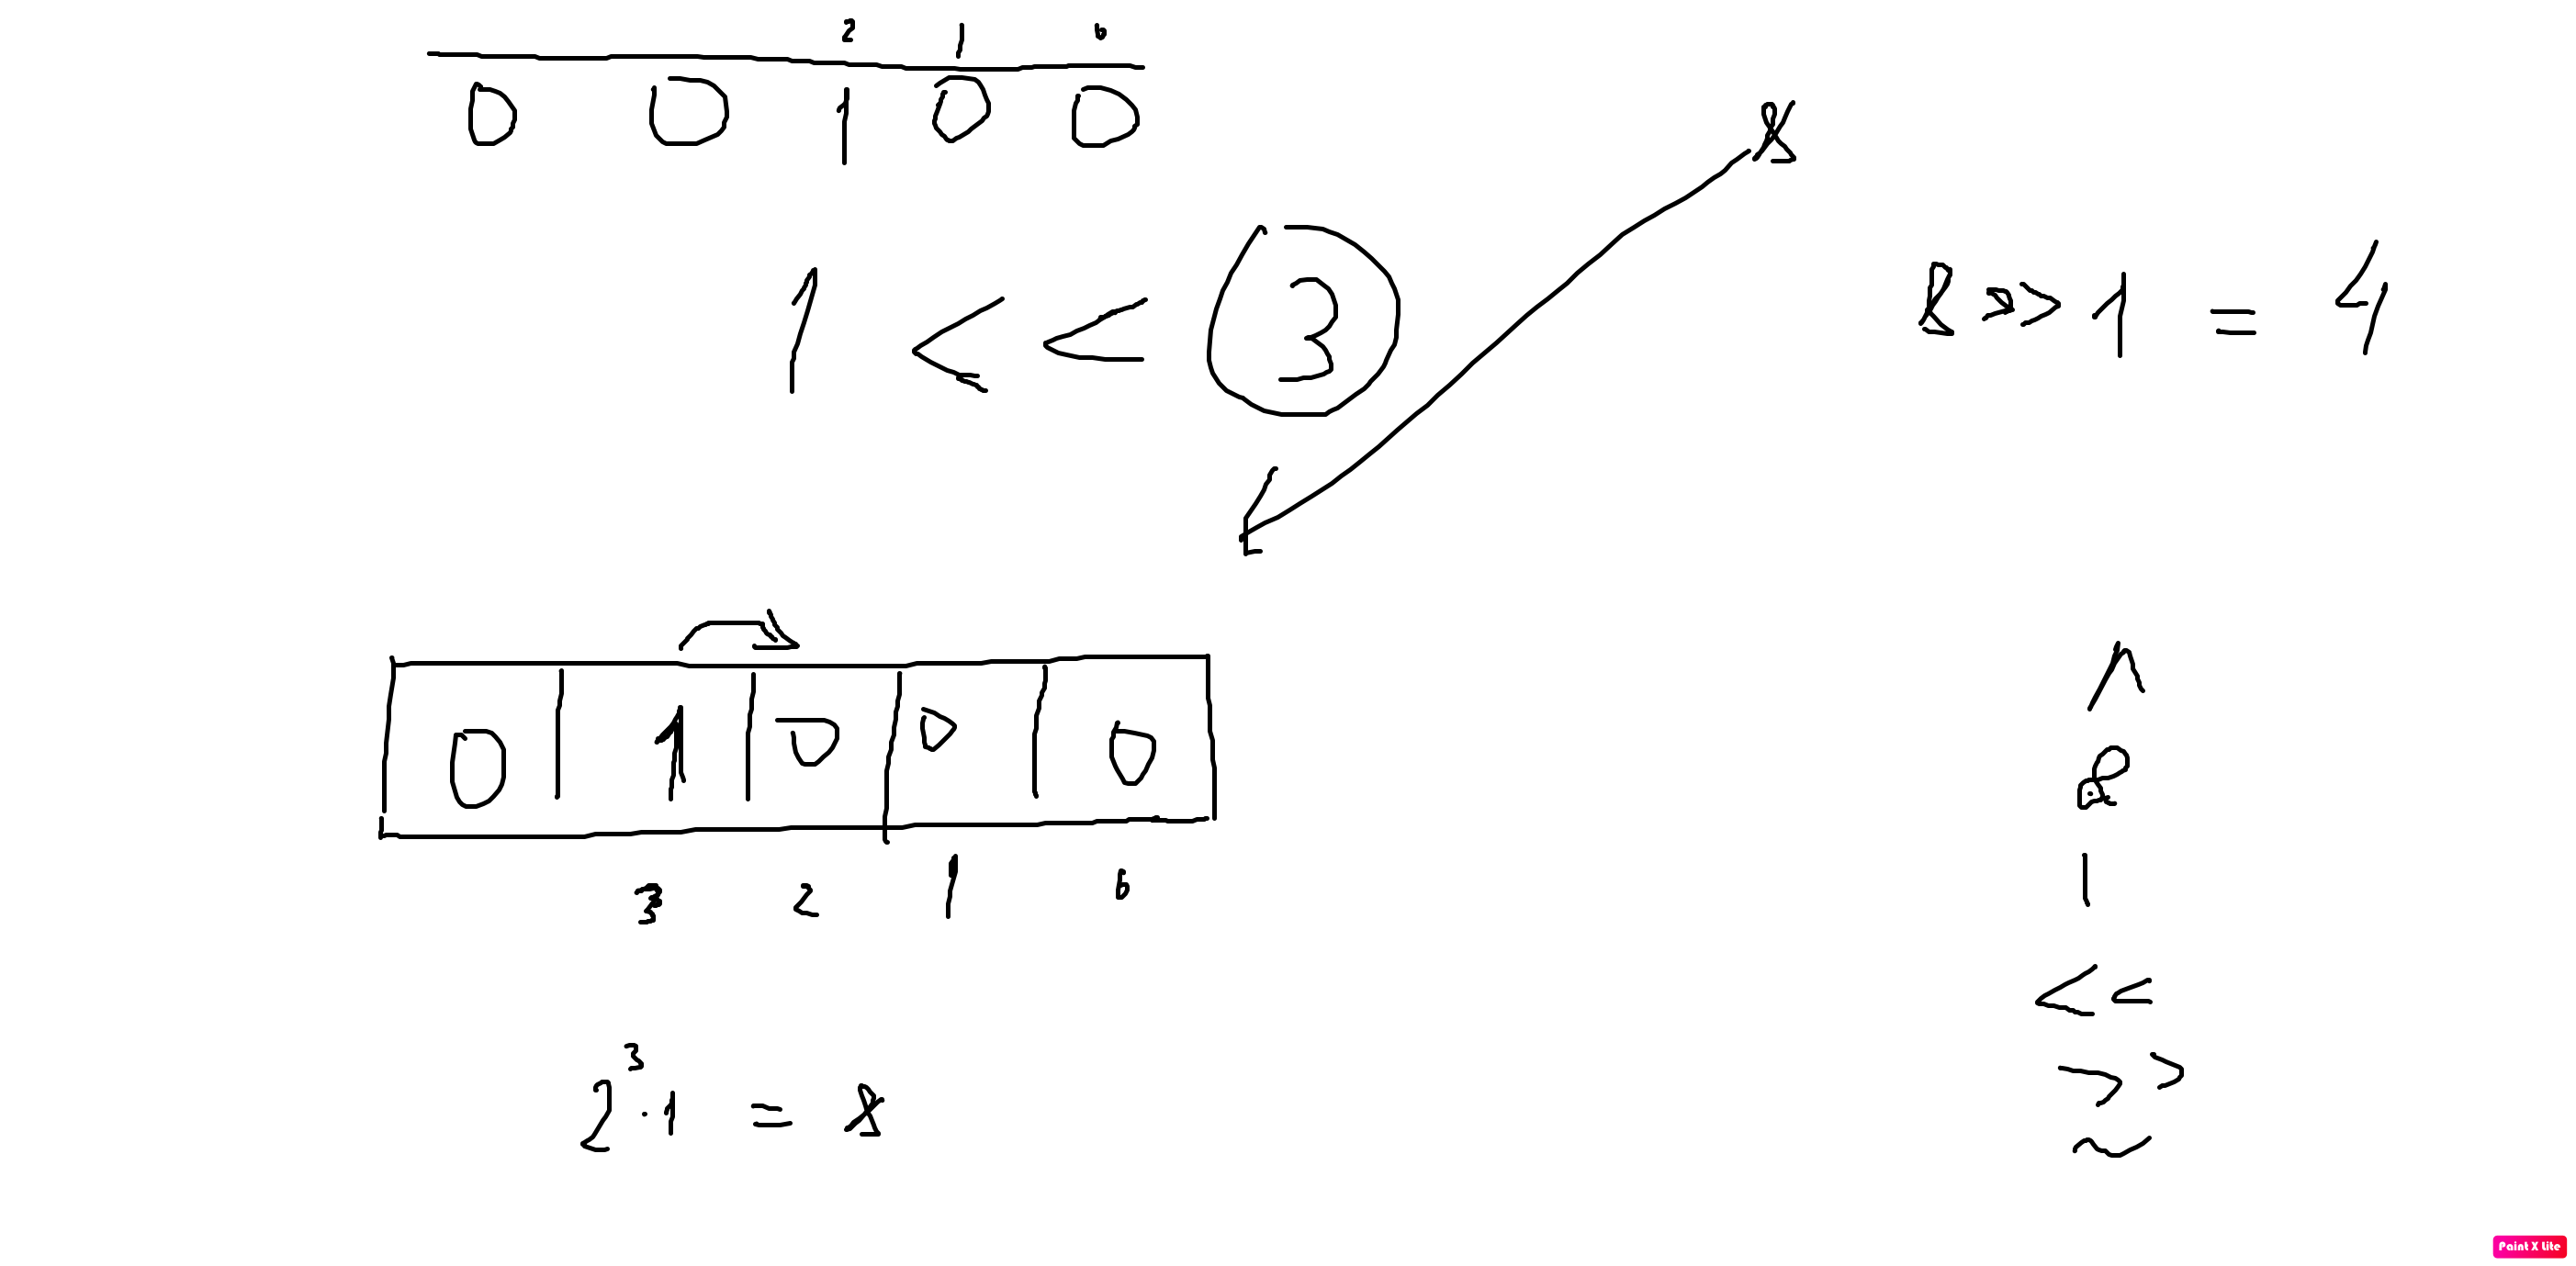 2 1 0
0 0 1 0 0
8
1 << 3
8 >> 1 = 4
0 1 0 0 0
3 2 1 0
2³ · 1 = 8
^
&
|
<<
>>
~
Paint X Lite